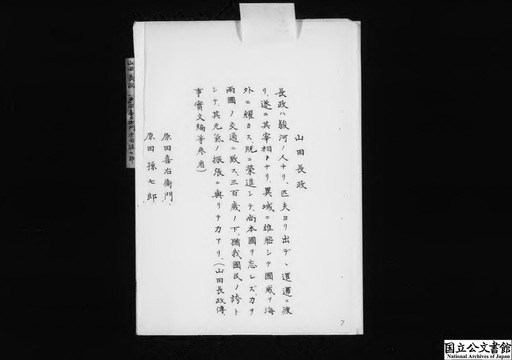 山田長政
長政ハ駿河ノ人ナリ、匹夫ヨリ出デ、遥ニ渡
リ、遂ニ其宰相トナリ、異域ニ雄飛シテ國威ヲ海
外ニ耀カス、既ニ榮進シテ、尚本國ヲ忘レズ、力ヲ
兩國ノ交通ニ致ス、三百歳ノ下、猶我國民ノ誇ト
シテ、其元氣ノ振張ニ與リテ力アリ、(山田長政傳
事實文編等參看)
原田喜右衛門
原田孫七郎
7
国立公文書館
National Archives of Japan